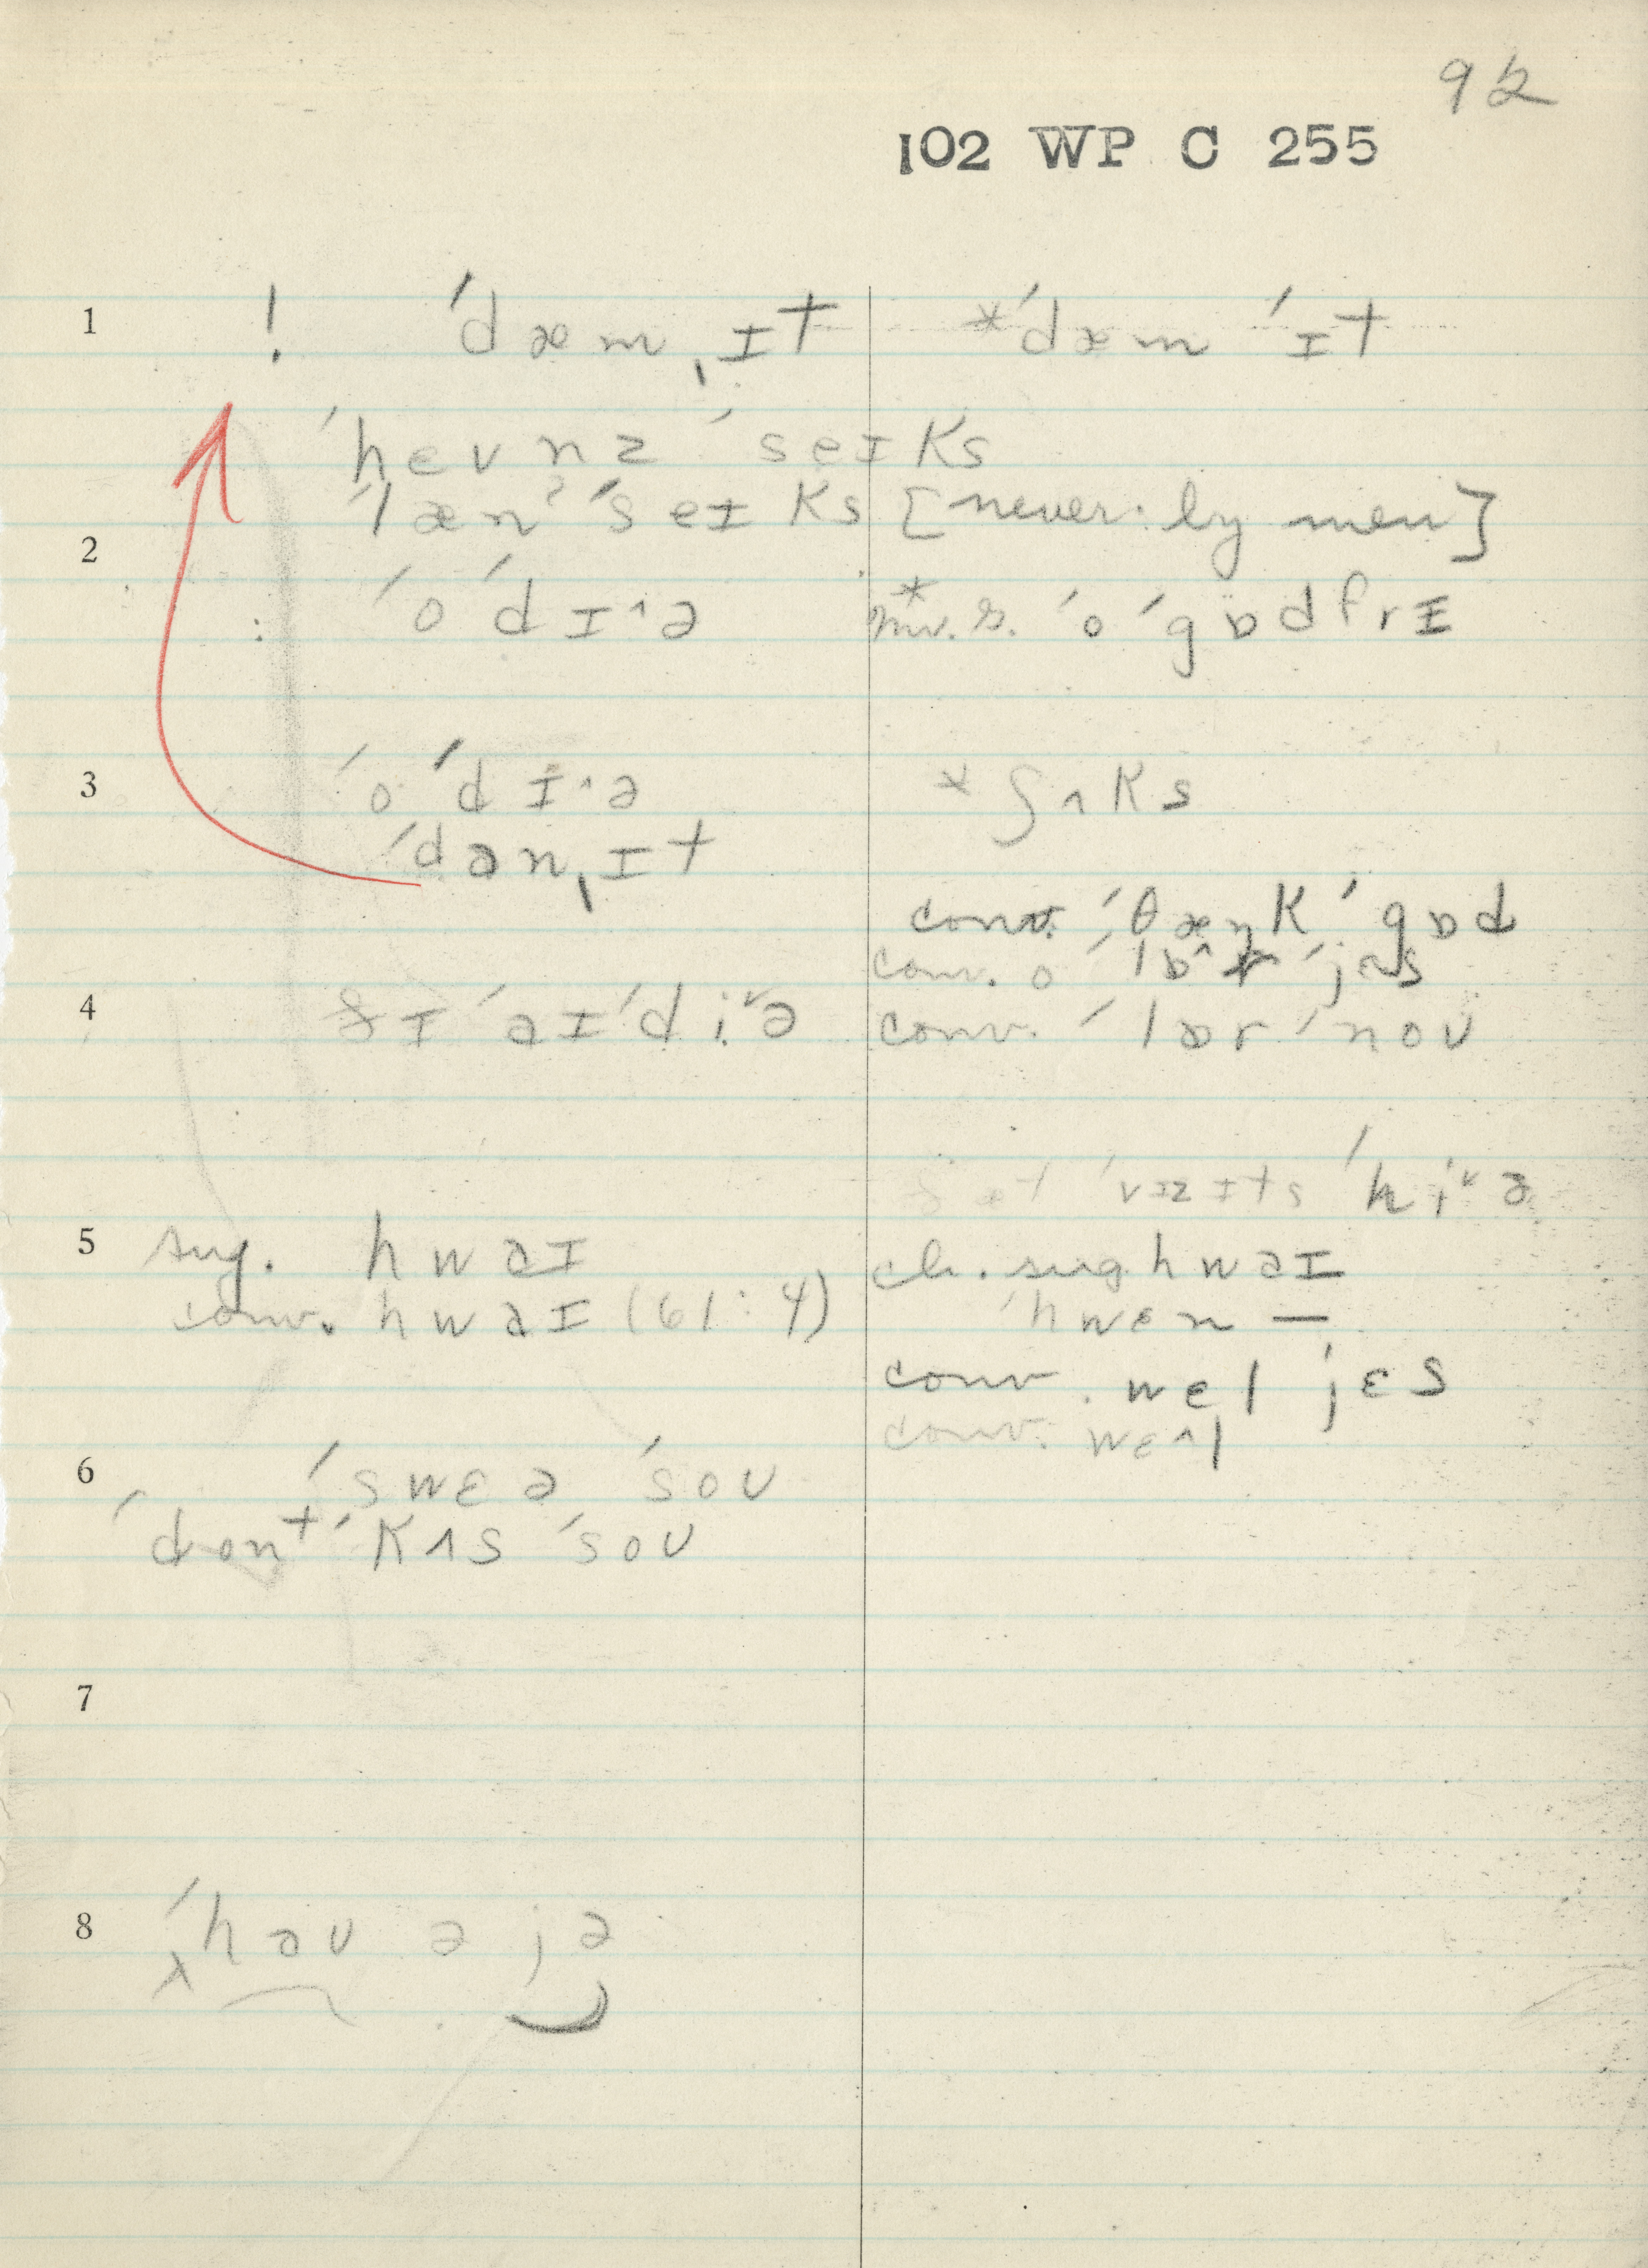 92
102 WP C 255
1 ! ˈdæmˌɪt *ˈdæm ˈɪt
ˈhevnz ˈseɪks
2 ˈlænˀ ˈseɪks [never by men]
: ˈo ˈdɪ^ə ˈo ˈgɒdfrɪ
3 ˈo ˈdɪ^ə * ʃʌks
ˈdanˌɪt
conv. ˈθæŋk ˈgɒd
conv. o ˈjɛs
4 ˈaɪˈdi˅ə conv. ˈlɔr ˈnoʊ
vɪzɪts ˈhi˅ə
5 sug. hwaɪ ch. sug. hwaɪ
conv. hwaɪ (61:4) ˈhwɛn —
conv. wel ˈjɛs
conv. wɛ^l
6 ˈswɛə ˈsoʊ
ˈdontˈ kʌs ˈsoʊ
7
8 ˈhaʊ ə jə